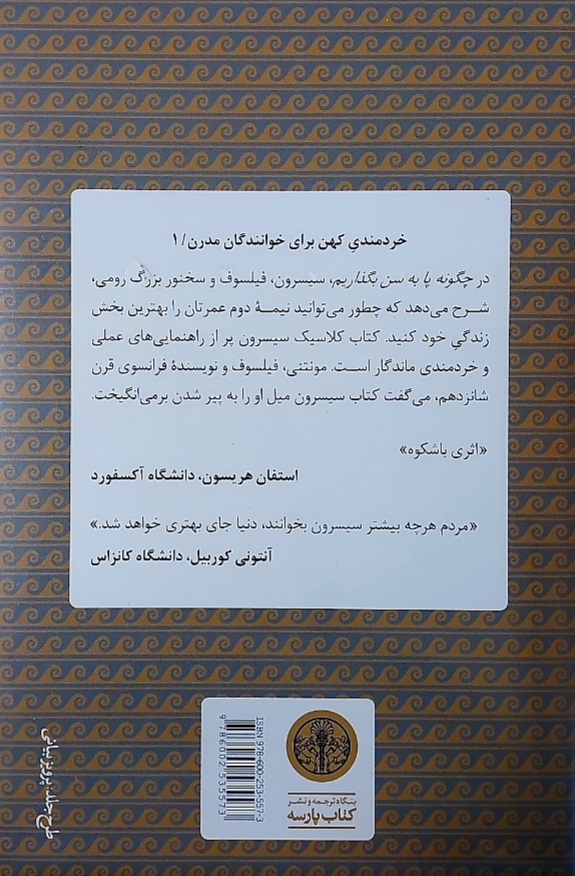 خردمندیِ کهن برای خوانندگان مدرن/ ۱
در چگونه پا به سن بگذاریم، سیسرون، فیلسوف و سخنور بزرگ رومی،
شرح می‌دهد که چطور می‌توانید نیمهٔ دوم عمرتان را بهترین بخش
زندگیِ خود کنید. کتاب کلاسیک سیسرون پر از راهنمایی‌های عملی
و خردمندی ماندگار است. مونتنی، فیلسوف و نویسندهٔ فرانسوی قرن
شانزدهم، می‌گفت کتاب سیسرون میل او را به پیر شدن برمی‌انگیخت.
«اثری باشکوه»
استفان هریسون، دانشگاه آکسفورد
«مردم هرچه بیشتر سیسرون بخوانند، دنیا جای بهتری خواهد شد.»
آنتونی کوربیل، دانشگاه کانزاس
طرح جلد: پرویز بیانی
ISBN 978-600-253-557-3
9 786002 535573
بنگاه ترجمه و نشر
کتاب پارسه